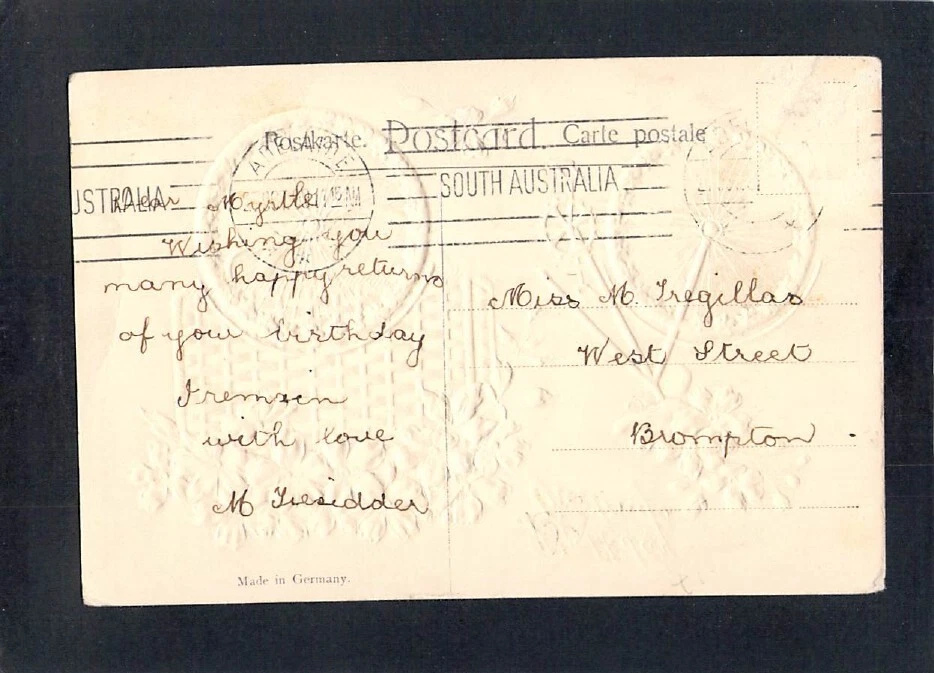 Postkarte. Postcard. Carte postale
USTRALIA
SOUTH AUSTRALIA
12 AM
Dear Myrtle
Wishing you
many happy returns
of your birthday
I remain
with love
M Tresidder
Miss M. Tregillas
West Street
Brompton.
Made in Germany.